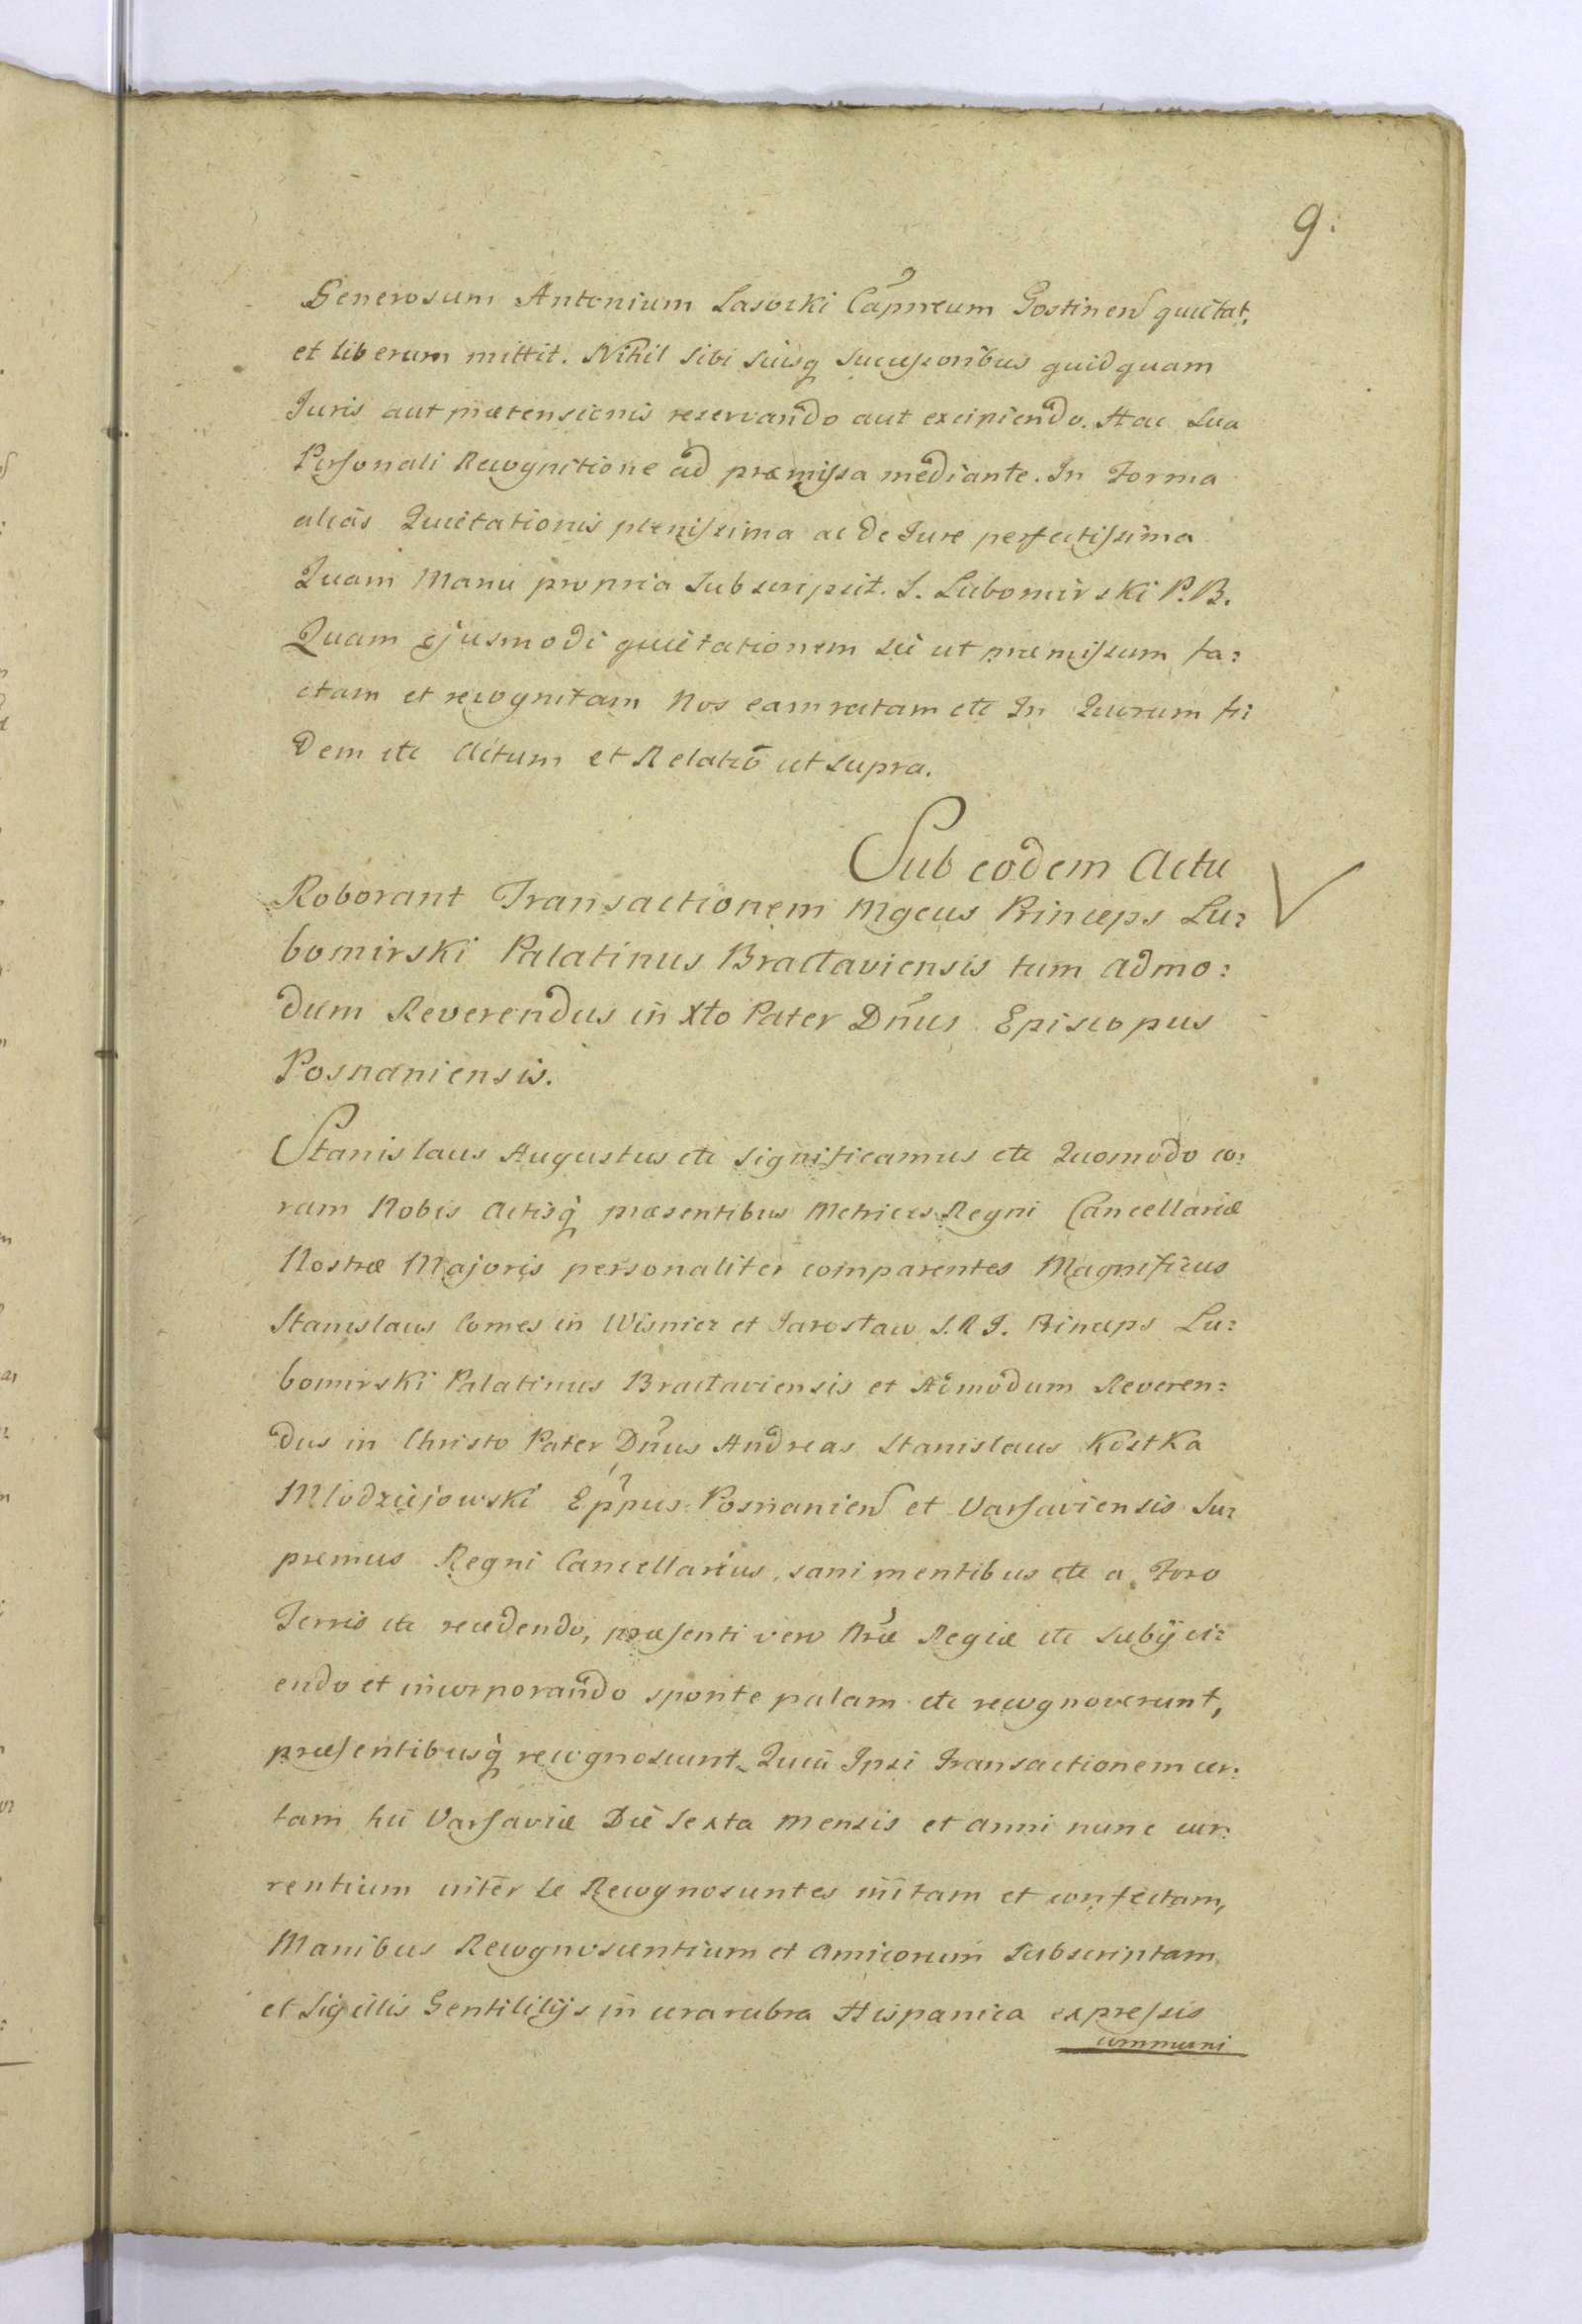 9:
Generosum Antonium Lasocki Capneum Gostinen quietat,
et liberum mittit. Nihil sibi suisq Successoribus quidquam
Juris aut prætensionis reservando aut excipiendo. Hac Sua
Personali Recognitione ad præmissa mediante. In Forma
alias Quietationis plenissima ac de Jure perfectissima
Quam Manu propria Subscripsit. S. Lubomirski P. B.
Quam ejusmodi quietationem sic ut præmissum fa:
ctam et recognitam Nos eam ratam etc In Quorum fi
dem etc Actum et Relatio ut supra.
Sub eodem Actu
Roborant Transactionem Mgcus Princeps Lu:
bomirski Palatinus Braclaviensis tum admo:
dum Reverendus in Xto Pater Dnus Episcopus
Posnaniensis.
Stanislaus Augustus etc significamus etc Quomodo co:
ram Nobis Actisq præsentibus Metrices Regni Cancellariæ
Nostræ Majoris personaliter comparentes Magnificus
Stanislaus Comes in Wisnicz et Jarosław S. R. J. Princeps Lu:
bomirski Palatinus Braclaviensis et Admodum Reveren:
dus in Christo Pater Dnus Andreas Stanislaus Kostka
Młodziejowski Eppus Posnanien et Varsaviensis Su:
premus Regni Cancellarius, sani mentibus etc a Foro
Terris etc recedendo, præsenti vero Nræ Regiæ etc Subijci:
endo et incorporando sponte palam etc recognoverunt,
præsentibusq recognoscunt. Quia Ipsi Transactionem cer:
tam hic Varsaviæ Die Sexta Mensis et anni nunc cur:
rentium inter Se Recognoscentes initam et confectam,
Manibus Recognoscentium et Amicorum Subscriptam
et Sigillis Gentilitijs in cera rubra Hispanica expressis
communi